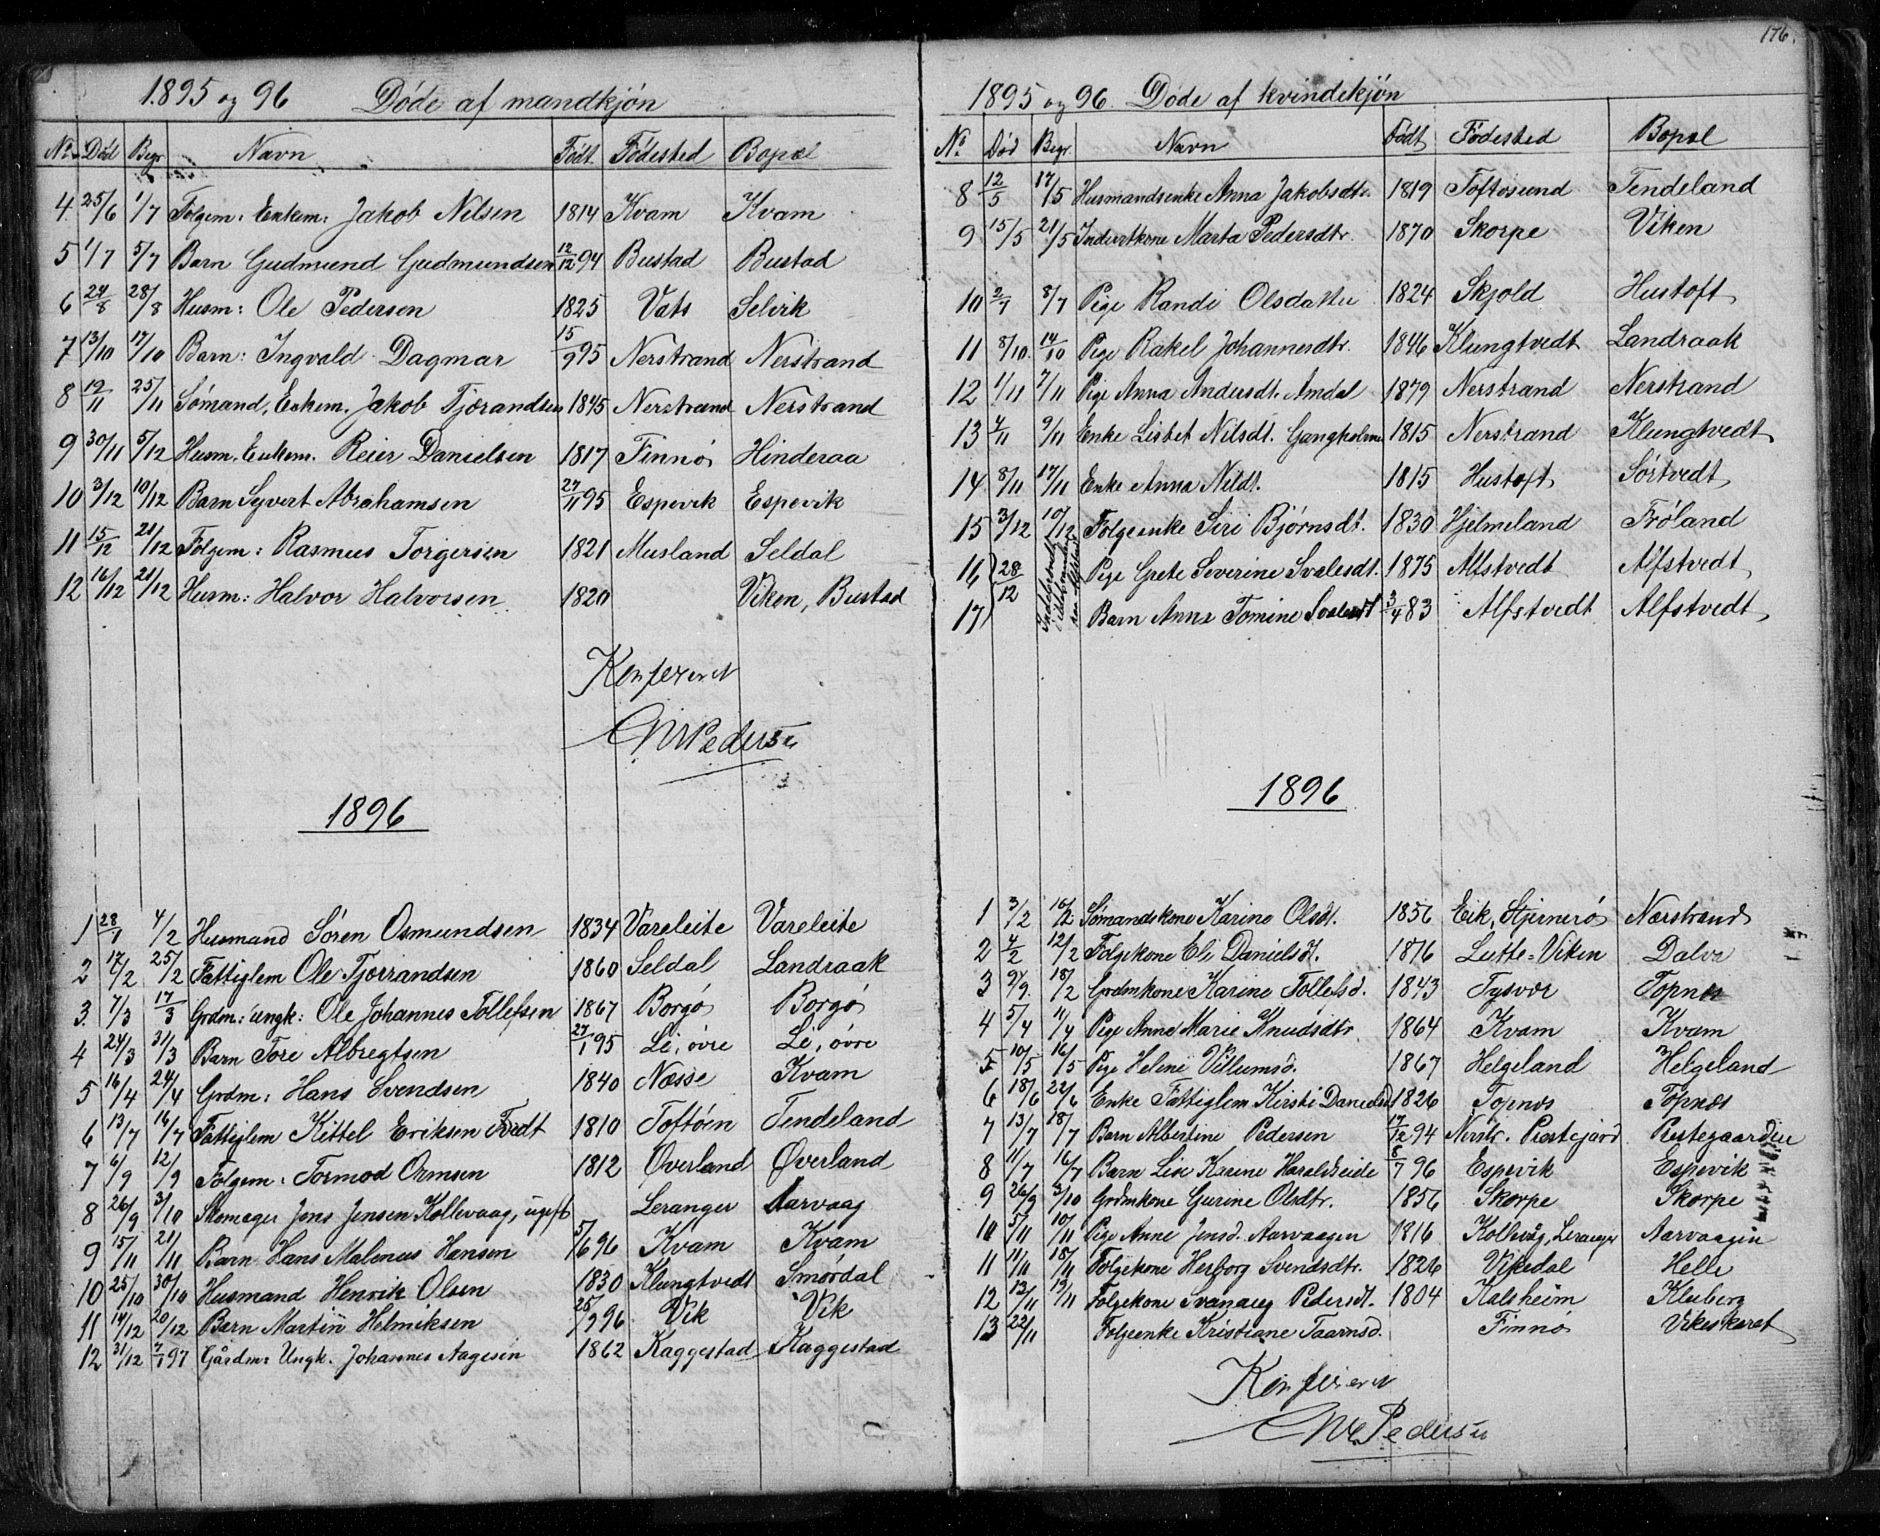 1895 og 96 Døde af mandkjøn
No Død Begr Navn Født Fødested Bopæl
4 25/6 1/7 Folgem: Enkem: Jakob Nilsen 1814 Kvam Kvam
5 1/7 5/7 Barn Gudmund Gudmundsen 12/12 94 Bustad Bustad
6 24/8 28/8 Husm: Ole Pedersen 1825 Vats Selvik
7 13/10 17/10 Barn: Ingvald Dagmar 15/9 95 Nerstrand Nerstrand
8 19/11 25/11 Sømand, Enkem. Jakob Tjærandsen 1845 Nerstrand Nerstrand
9 30/11 5/12 Husm. Enkem. Reier Danielsen 1817 Finnø Hinderaa
10 3/12 10/12 Barn Syvert Abrahamsen 27/11 95 Espevik Espevik
11 15/12 21/12 Folgem: Rasmus Torgersen 1821 Musland Seldal
12 16/12 21/12 Husm: Halvor Halvorsen 1820 Viken, Bustad
Konfereret
Pedersen
1896
1 28/1 4/2 Husmand Søren Osmundsen 1834 Vareleite Vareleite
2 17/2 25/2 Fattiglem Ole Tjørrandsen 1860 Seldal Landraak
3. 7/3 17/3 Grdm: ungk: Ole Johannes Tollefsen 1867 Borgø Borgø
4 24/3 31/3 Barn Tore Albregtsen 27/1 95 Lé, øvre Lé, øvre
5 16/4 24/4 Grdm: Hans Svendsen 1840 Næsse Kvam
6 13/7 16/7 Fattiglem Kittel Eriksen Tvedt 1810 Toftøen Tendeland
7 6/9 12/9 Folgem: Tormod Ormsen 1812 Øverland Øverland
8 26/9 3/10 Skomager Jens Jensen Kollevaag, ugift Leranger Aarvaag
9 15/11 21/11 Barn Hans Malenus Hansen 5/6 96 Kvam Kvam
10 25/10 30/10 Husmand Henrik Olsen 1830 Klungtvedt Smørdal
11 14/12 20/12 Barn Martin Helmiksen 25/9 96 Vik Vik
12 31/12 7/1 97 Gårdm: Ungk. Johannes Aagesen 1862 Kaggestad Kaggestad
176.
1895 og 96. Døde af kvindekjøn
No Død Begr. Navn Født Fødested Bopæl
8 12/5 17/5 Husmandsenke Anna Jakobsdtr. 1819 Toftøsund Tendeland
9 15/5 21/5 Inderstkone Marta Pedersdtr. 1870 Skorpe Viken
10 2/7 8/7 Pige Randi Olsdatter 1824 Skjold Hustoft
11 8/10. 14/10 Pige Rakel Johannesdtr. 1846 Klungtvedt Landraak
12 1/11 7/11 Pige Anna Andersdt. Amdal 1879 Nerstrand Nerstrand
13 4/11 9/11 Enke Lisbet Nilsdt. Gangholmen 1815 Nerstrand Klungtvedt
14. 8/11 17/11 Enke Anna Nilsdt. 1815 Hustoft Sørtvedt
15 3/12 10/12 Folgeenke Siri Bjørnsdt. 1830 Hjelmeland Frøland
16 28/12 Pige Grete Severine Svalesdt. 1875 Alfstvedt Alfstvedt
17 Barn Anna Tomine Svalesdt 3/4 83 Alfstvedt Alfstvedt
1896
1 3/2 10/2 Sømandskone Karine Olsdt. 1856 Eik, Stjernerø Nærstrand
2 4/2 12/2 Folgekone Eli Danielsdt. 1816 Lutte-Viken Dalva
3 9/2. 18/2 Grdmkone Karine Tollefsd. 1843 Tysvær Topnes
4 5/4 11/4 Pige Anne Marie Knudsdtr 1864 Kvam Kvam
5 10/5 16/5 Pige Helene Villumsd. 1867 Helgeland Helgeland
6 18/6 22/6 Enke Fattiglem Kirsti Danielsd 1826 Topnes Topnes
7 13/7 18/7 Barn Albertine Pedersen 17/12 94 Nerstr. Prestejard Prestegaarden
8 11/7 16/7 Barn Lise Karine Haraldseide 8/7 96 Espevik Espevik
9 26/9 3/10 Grdmkone Gurine Olsdtr. 1856 Skorpe Skorpe
10 5/11 10/11 Pige Anne Jensd. Aarvaagen 1816 Kollevåg, Leranger Aarvaagen
11 11/11 18/11 Folgekone Herborg Svendsdtr. 1826 Vikedal Helle
12 13/11 19/11 Folgekone Svanaug Pedersdt. 1804 Kalsheim Kleiberg
13 22/11 Folgeenke Kristiane Taarnsd. Finnø Vikeskaret
Konfereret
Pedersen